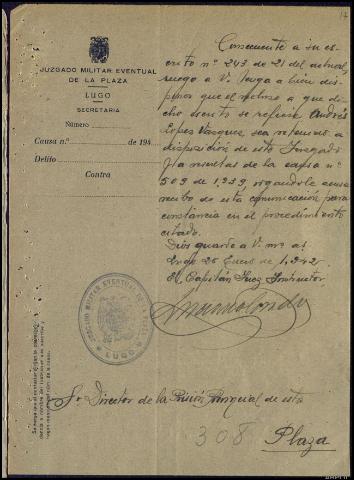 17
JUZGADO MILITAR EVENTUAL
DE LA PLAZA
LUGO
SECRETARIA
Número
Causa n.º de 194
Delito
Contra
Consecuente a su es-
crito nº 243 de 21 del actual,
ruego a V. tenga a bien dis-
poner que el recluso a que di-
cho escrito se refiere Andrés
Lopez Vazquez sea retenido a
disposición de este Juzgado
y a resultas de la causa nº
509 de 1.939, rogandole acuse
recibo de esta comunicación para
constancia en el procedimiento
citado.
Dios guarde a V. m. a.
Lugo 26 Enero de 1.942.
El Capitán Juez Instructor
JUZGADO MILITAR EVENTUAL DE LA PLAZA
LUGO
Sr. Director de la Prisión Provincial de esta
308 Plaza